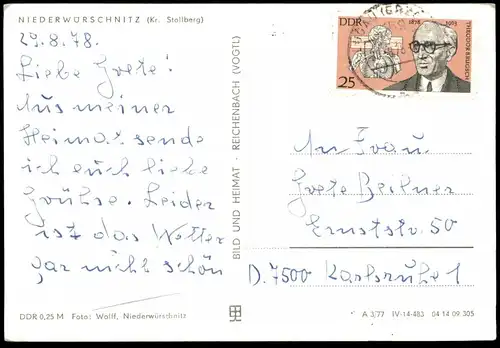 NIEDERWÜRSCHNITZ (Kr. Stollberg)
29.8.78.
Liebe Grete!
Aus meiner
Heimat sende
ich euch liebe
Grühse. Leider
ist das Wetter
gar nicht schön
DDR 0,25 M Foto: Wolff, Niederwürschnitz
BILD UND HEIMAT · REICHENBACH (VOGTL)
DDR
1878 1963
THEODOR BRUGSCH
25
An Frau
Grete Beilner
Ernststr. 50
D. 7500 Karlsruhe 1
A 3/77 IV-14-483 04 14 09 305